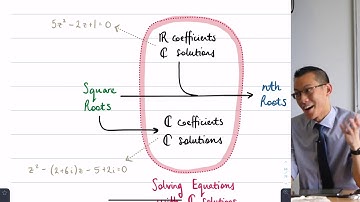 5z² − 2z + 1 = 0
ℝ coefficients
ℂ solutions
Square
Roots
nth
Roots
ℂ coefficients
ℂ solutions
z² − (2+6i)z − 5 + 2i = 0
Solving Equations
with ℂ Solutions